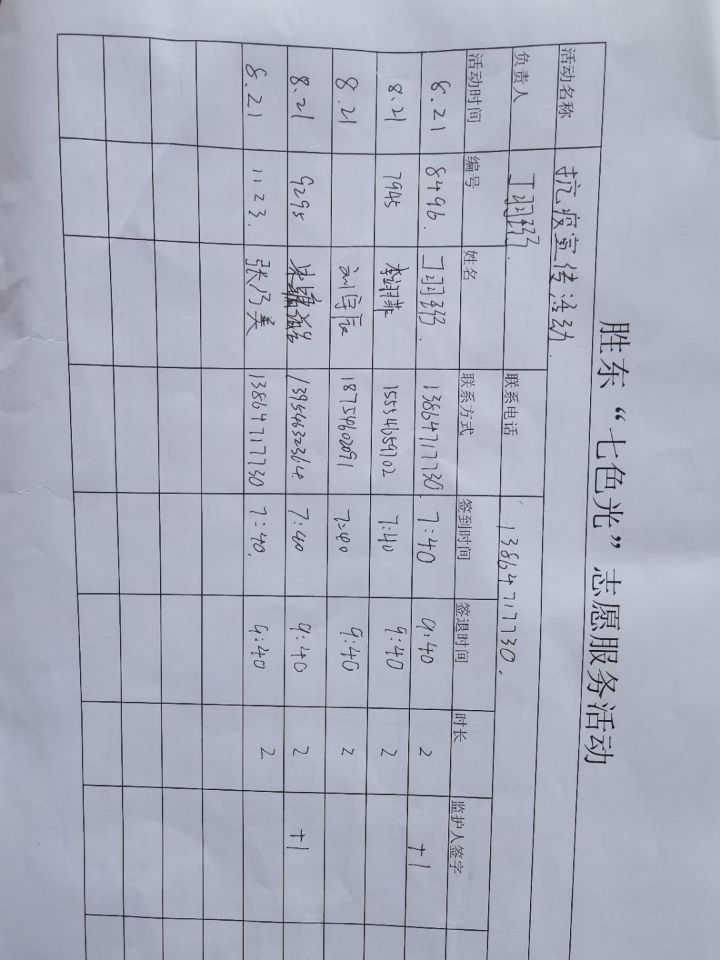 胜东“七色光”志愿服务活动
活动名称 抗疫宣传活动.
负责人 丁羽 联系电话 13864717730.
活动时间 编号 姓名 联系方式 签到时间 签退时间 时长 监护人签字
8.21 8496. 丁羽 13864717730. 7:40 9:40 2 +1
8.21 7945 李 15554659702 7:40 9:40 2
8.21 刘宇辰 18754960291 7:40 9:40 2
8.21 9295 7:40 9:40 2 +1
8.21 1123. 张乃美 13864717730 7:40. 9:40 2